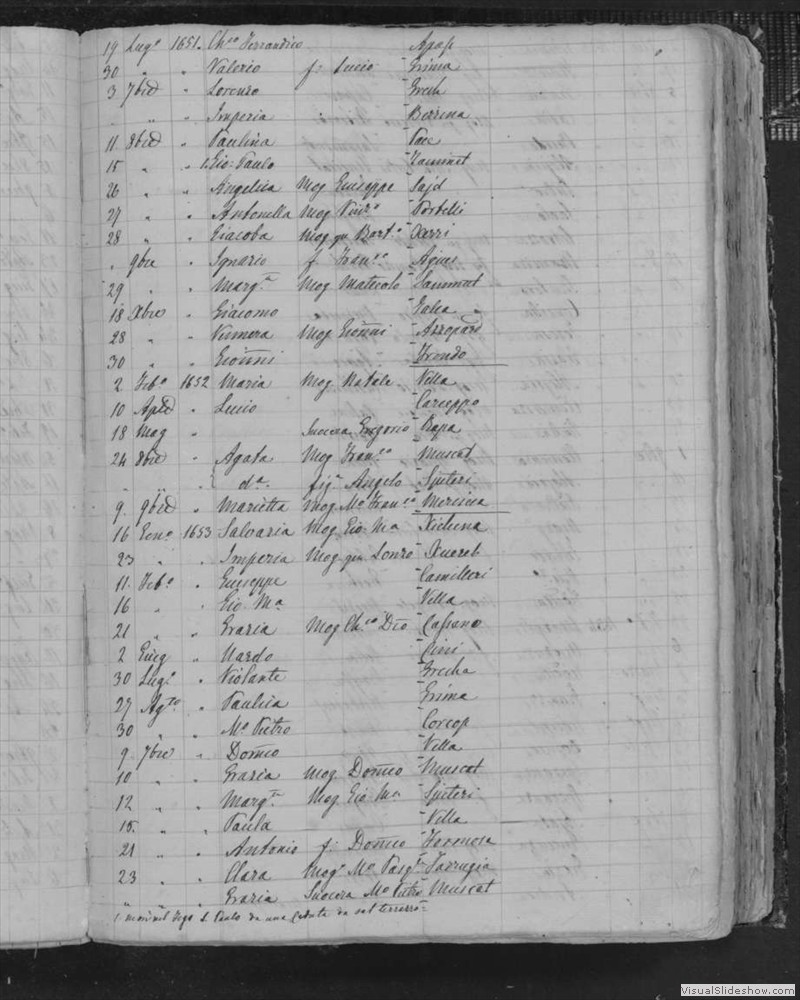 19 Lug° 1651. Ch.co Ferrandico Agap
30 " " Valerio f: Lucio - Grima
3 7bre " Lorenzo - Grech
" " Imperia - Bezzina
11 8bre " Paulina - Pace
15 " " 1. Gio: Paulo - Zammit
26 " " Angelica Mog Giuseppe - Sajd
27 " " Antonella Mog Vinz° - Portelli
28 " " Giacoba Mog. qm Bart° - Xerri
" 9bre " Ignazio f. Fran.co - Agius
29 " " Marg.ta Mog Matteolo - Sammut
18 Xbre " Giacomo
28 " " Mog Gio͞nni
30 " " Gio͞nni
2 Feb° 1652 Maria Mog Natale - Villa
10 Aple " Lucio - Carueppo
18 Mag " Suocera Gregorio - Rapa
24 8bre " Agata Mog Fran.co - Muscat
" " " da. fig.a Angelo - Spiteri
9. 9bre " Marietta Mog. M° Fran.co
16 Gen° 1653 Salvaria Mog. Gio Ma - Xicluna
23 " " Imperia Mog. qm Lonzo - Xuereb
11. Feb° " Giuseppe - Camilleri
16 " " Gio. Ma - Villa
21 " " Grazia Mog Ch.co Dio - Cassano
2 Giug " Nardo - Cini
30 Lug° " Violante - Grecha
27 Ag.to " Paulica - Grima
30 " " M° Pietro - Corcop
9. 7bre " Dom͞co - Villa
10 " " Grazia Mog. Dom͞co - Muscat
12 " " Marg.ta Mog. Gio Ma - Spiteri
15. " " Paula - Villa
21 " " Antonio f: Dom͞co - Formosa
23 " " Clara Mog. M° Pasq.le - Farrugia
" " " Grazia Suocera M° Pietro - Muscat
S. Paulo da una caduta
VisualSlideshow.com